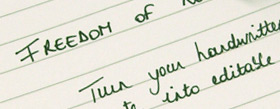 FREEDOM OF
Turn your handwritten
into editable